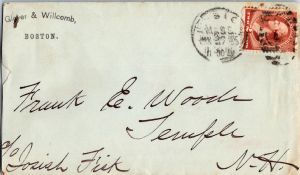 Glover & Willcomb,
BOSTON.
Frank E. Woods
Temple
c/o
Josiah Fisk
N.H.